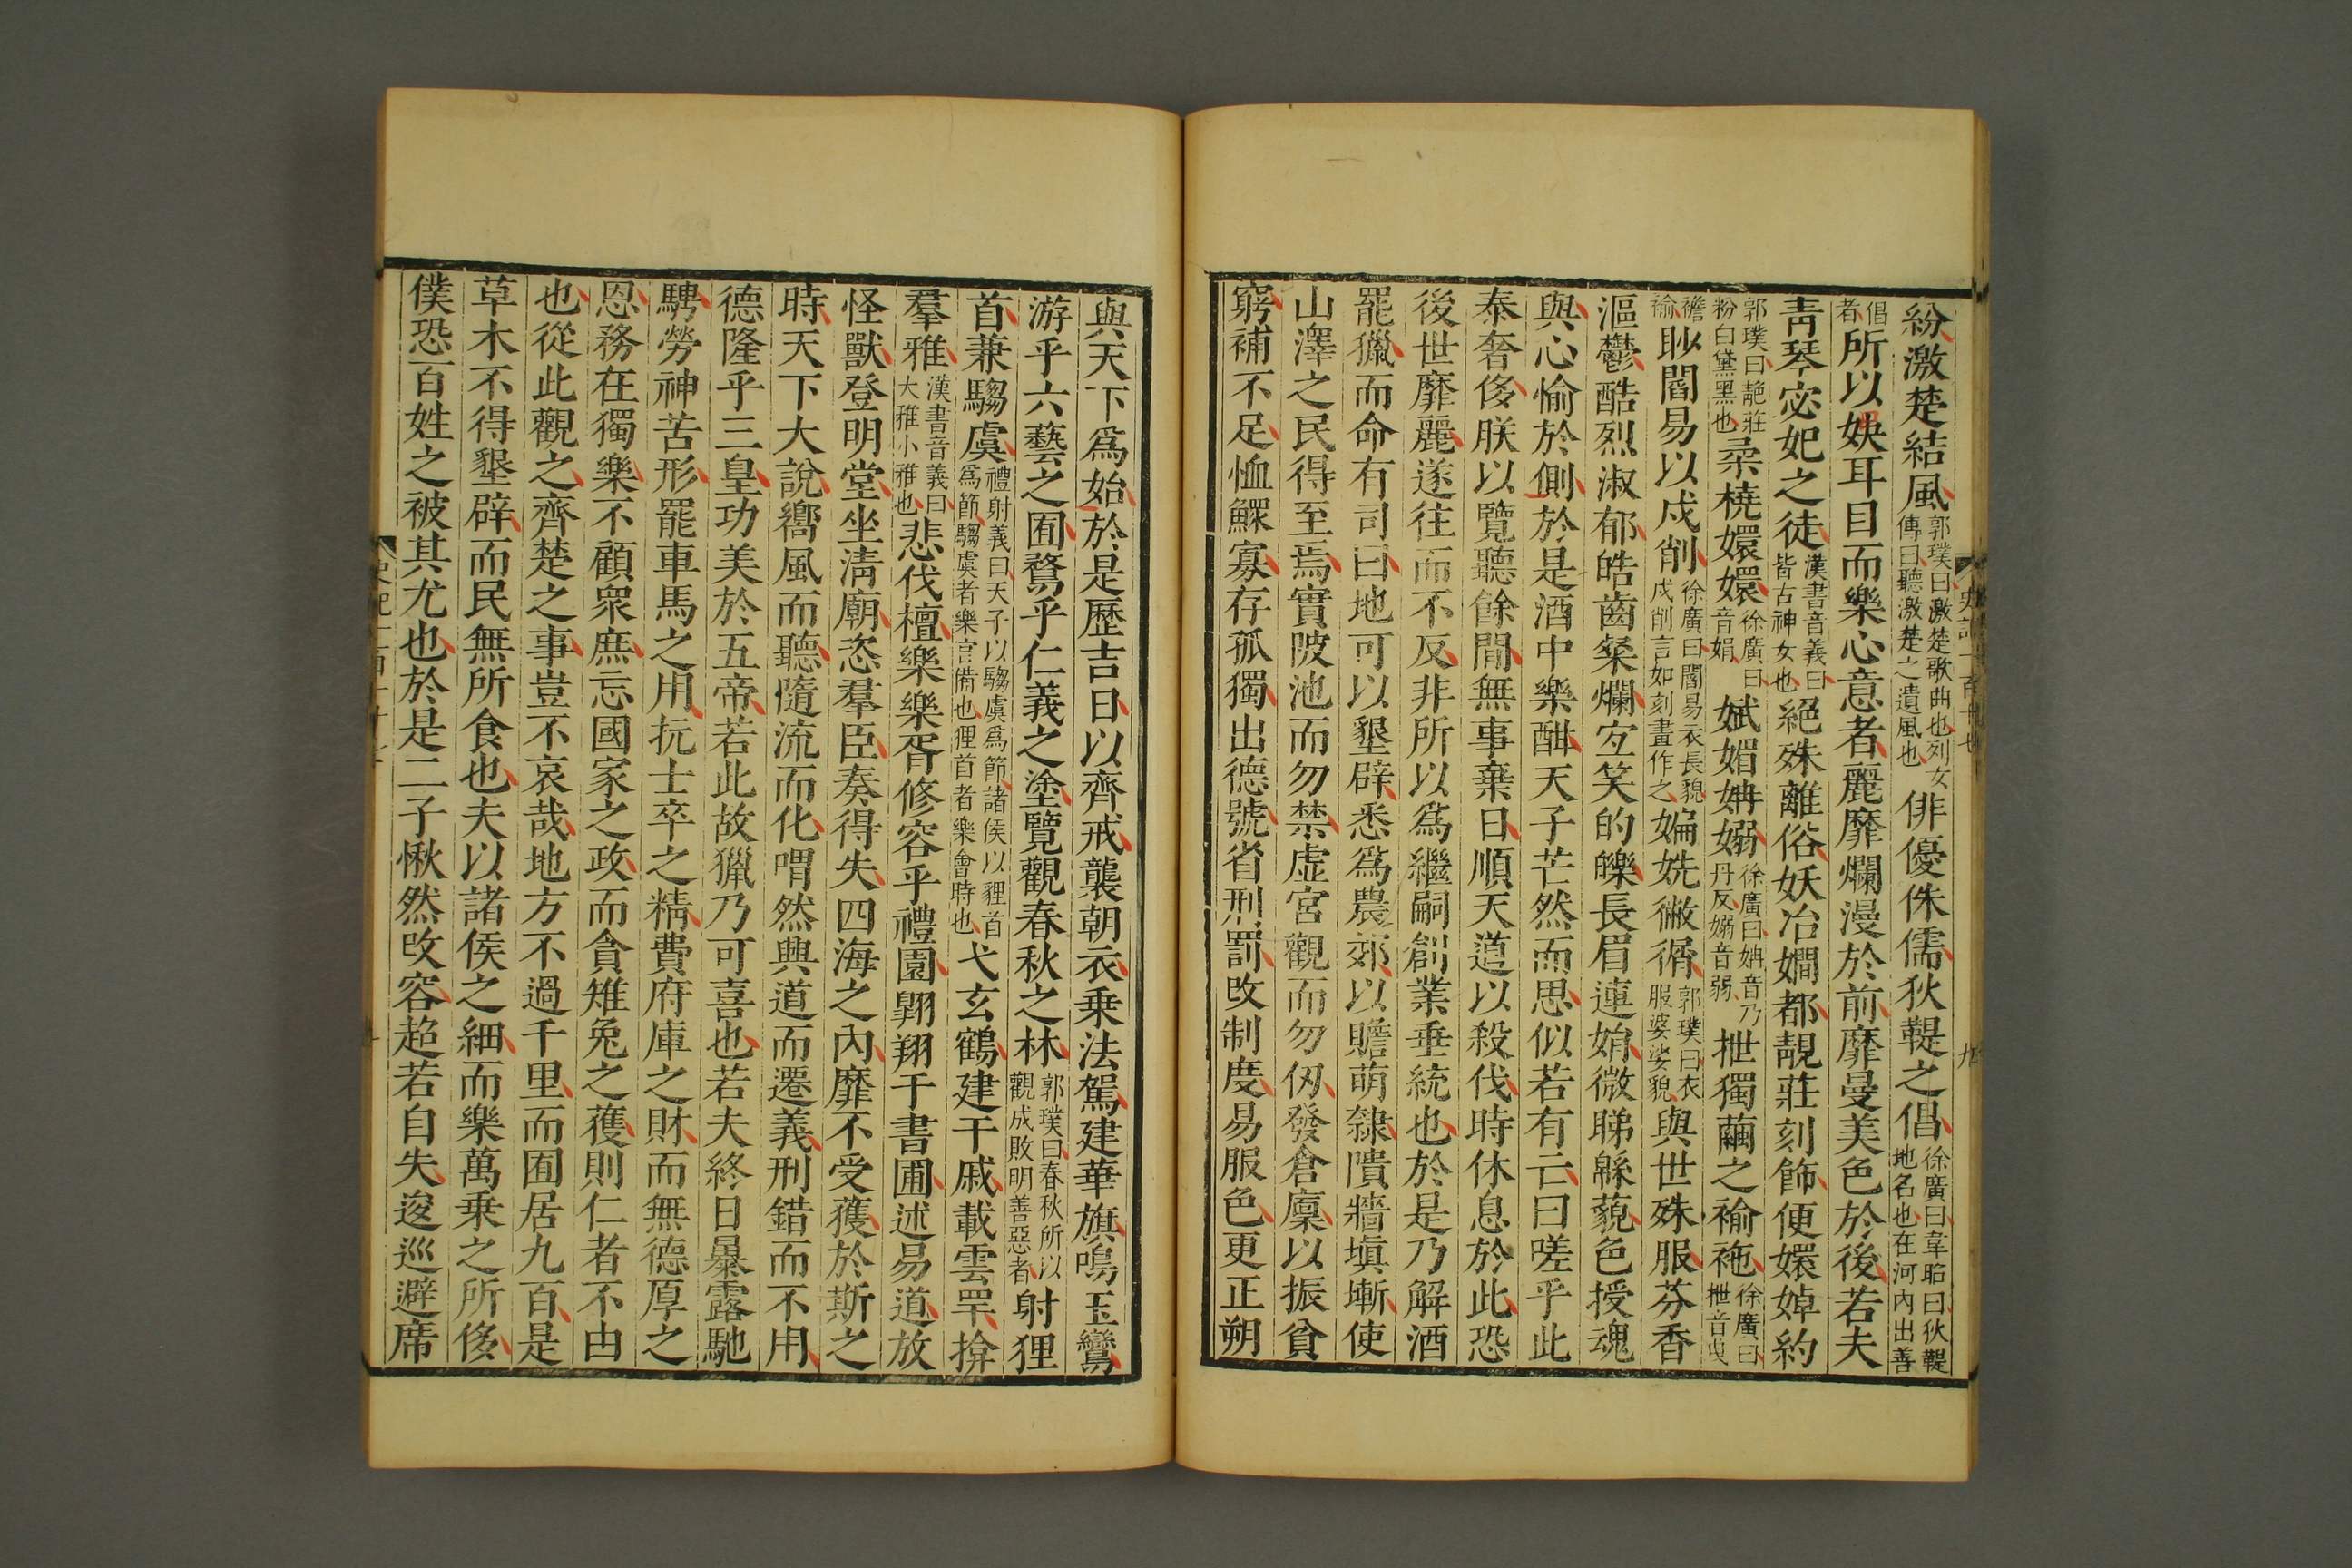 紛激楚結風郭璞曰激楚歌曲也列女傳曰聽激楚之遺風也俳優侏儒狄鞮之倡徐廣曰韋昭曰狄鞮地名也在河內出善
倡者所以娛耳目而樂心意者麗靡爛漫於前靡曼美色於後若夫
青琴宓妃之徒漢書音義曰皆古神女也絕殊離俗妖冶嫺都靚莊刻飾便嬛婥約
郭璞曰靘莊粉白黛黑也柔橈嬛嬛徐廣曰音娟嫵媚姌嫋徐廣曰姌音乃丹反嫋音弱抴獨繭之褕袘徐廣曰抴音曳
襜褕眇閻易以戍削徐廣曰閻易衣長貌戍削言如刻畫作之媥姺徶㣯郭璞曰衣服婆娑貌與世殊服芬香
漚鬱酷烈淑郁皓齒粲爛宜笑的皪長眉連娟微睇緜藐色授魂
與心愉於側於是酒中樂酣天子芒然而思似若有亡曰嗟乎此
泰奢侈朕以覽聽餘閒無事棄日順天道以殺伐時休息於此恐
後世靡麗遂往而不反非所以爲繼嗣創業垂統也於是乃解酒
罷獵而命有司曰地可以墾辟悉爲農郊以贍萌隸隤牆塡塹使
山澤之民得至焉實陂池而勿禁虛宮觀而勿仞發倉廩以振貧
窮補不足恤鰥寡存孤獨出德號省刑罰改制度易服色更正朔
史記一百十七
九
與天下爲始於是歷吉日以齊戒襲朝衣乗法駕建華旗鳴玉鸞
游乎六藝之囿騖乎仁義之塗覽觀春秋之林郭璞曰春秋所以觀成敗明善惡者射貍
首兼騶虞禮射義曰天子以騶虞爲節諸侯以貍首爲節騶虞者樂官備也貍首者樂會時也弋玄鶴建干戚載雲䍐揜
羣雅漢書音義曰大雅小雅也悲伐檀樂樂胥修容乎禮園翺翔于書圃述易道放
怪獸登明堂坐淸廟恣羣臣奏得失四海之內靡不受獲於斯之
時天下大說嚮風而聽隨流而化喟然興道而遷義刑錯而不用
德隆乎三皇功美於五帝若此故獵乃可喜也若夫終日暴露馳
騁勞神苦形罷車馬之用抏士卒之精費府庫之財而無德厚之
恩務在獨樂不顧眾庶忘國家之政而貪雉兔之獲則仁者不由
也從此觀之齊楚之事豈不哀哉地方不過千里而囿居九百是
草木不得墾辟而民無所食也夫以諸侯之細而樂萬乗之所侈
僕恐百姓之被其尤也於是二子愀然改容超若自失逡巡避席